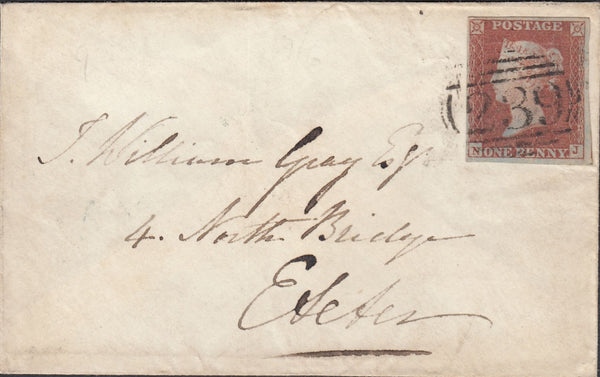 POSTAGE
239
N ONE PENNY J
J. William Gray Esq
4. North Bridge
Exeter